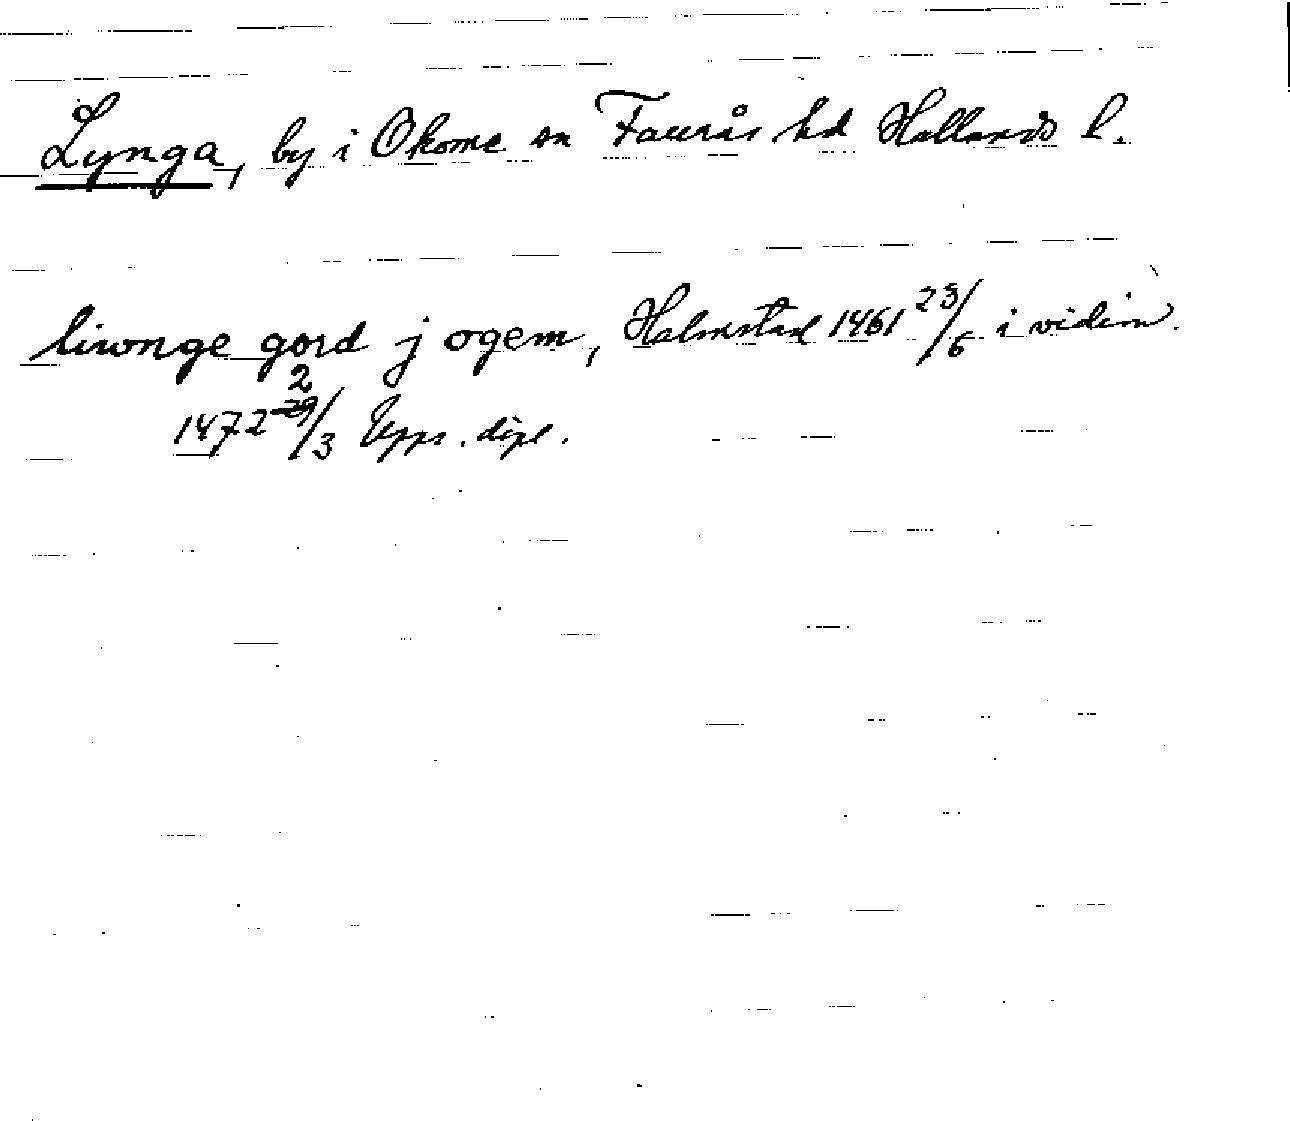 Lynga, by i Okome sn Faurås hd Hallands l.
liwnge gord j ogem, Halmstad 1461 23/6 i vidim.
1472 2/3 Upps. dipl.